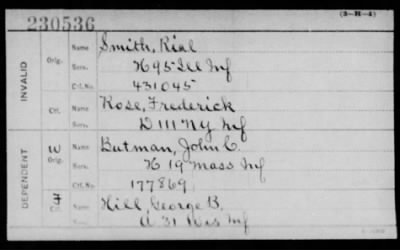 230536
(3-H-4)
INVALID
Orig.
Name
Smith, Rial
Serv.
K 95 Ill Inf
Ctf. No.
431045
Ctf.
Name
Rose, Frederick
Serv.
D 111 NY Inf
DEPENDENT
W
Orig.
Name
Butman, John C.
Serv.
K 19 Mass Inf
Ctf. No.
177869
Ctf.
Name
Hill George B.
Serv.
A 31 Wis Inf